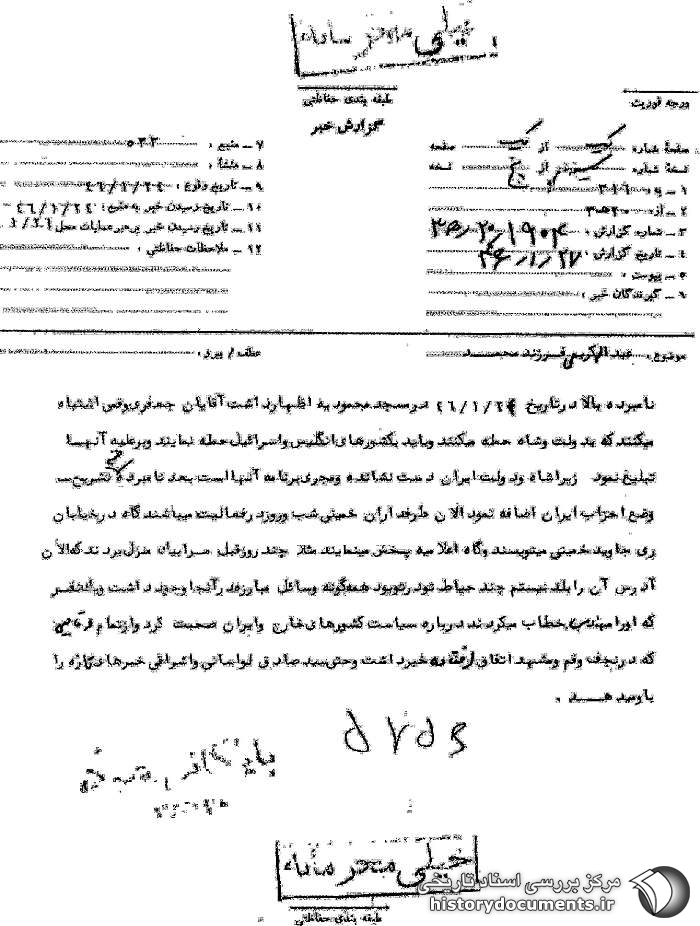 خیلی محرمانه
طبقه بندی حفاظتی
درجه فوریت
گزارش خبر
صفحه شماره یک از یک صفحه
نسخه شماره از پنج نسخه
۱ ـ به : ۳۱۶
۲ ـ از :
۳ ـ شماره گزارش :
۴ ـ تاریخ گزارش : ۴۶/۱/۲۷
۵ ـ پیوست :
۶ ـ گیرندگان خبر :
۷ ـ منبع :
۸ ـ منشأ :
۹ ـ تاریخ وقوع : ۴۶/۱/۲۴
۱۰ ـ تاریخ رسیدن خبر به منبع : ۴۶/۱/۲۴
۱۱ ـ تاریخ رسیدن خبر برهبر عملیات محل
۱۲ ـ ملاحظات حفاظتی :
موضوع : عبدالکریم فرزند محمد
عطف / پیرو :
نامبرده بالا در تاریخ ۴۶/۱/۲۴ در مسجد محمودیه اظهار داشت آقایان جعفری وقمی اشتباه
میکنند که بدولت وشاه حمله میکنند وباید بکشورهای انگلیس واسرائیل حمله نمایند وبرعلیه آنها
تبلیغ نمود زیرا شاه ودولت ایران دست نشانده ومجری برنامه آنها است بعد نامبرده تشریح
وضع احزاب ایران اضافه نمود الان طرفداران خمینی شب وروز در فعالیت میباشند گاه در خیابان
ری جاوید خمینی مینویسند وگاه اعلامیه پخش مینمایند مثلا چند روز قبل مرا بیک منزل بردند که الان
آدرس آن را بلد نیستم چند حیاط تو در تو بود همه گونه وسائل مبارزه در آنجا وجود داشت ویک نفر
که اورا مهندس خطاب میکردند درباره سیاست کشورهای خارج وایران صحبت کرد واز تمام
که در نجف وقم ومشهد اتفاق افتاده خبر داشت وحتی سید صادق لواسانی واشراقی خبرهای تازه را
باو میدهند .
خیلی محرمانه
طبقه بندی حفاظتی
مرکز بررسی اسناد تاریخی
historydocuments.ir